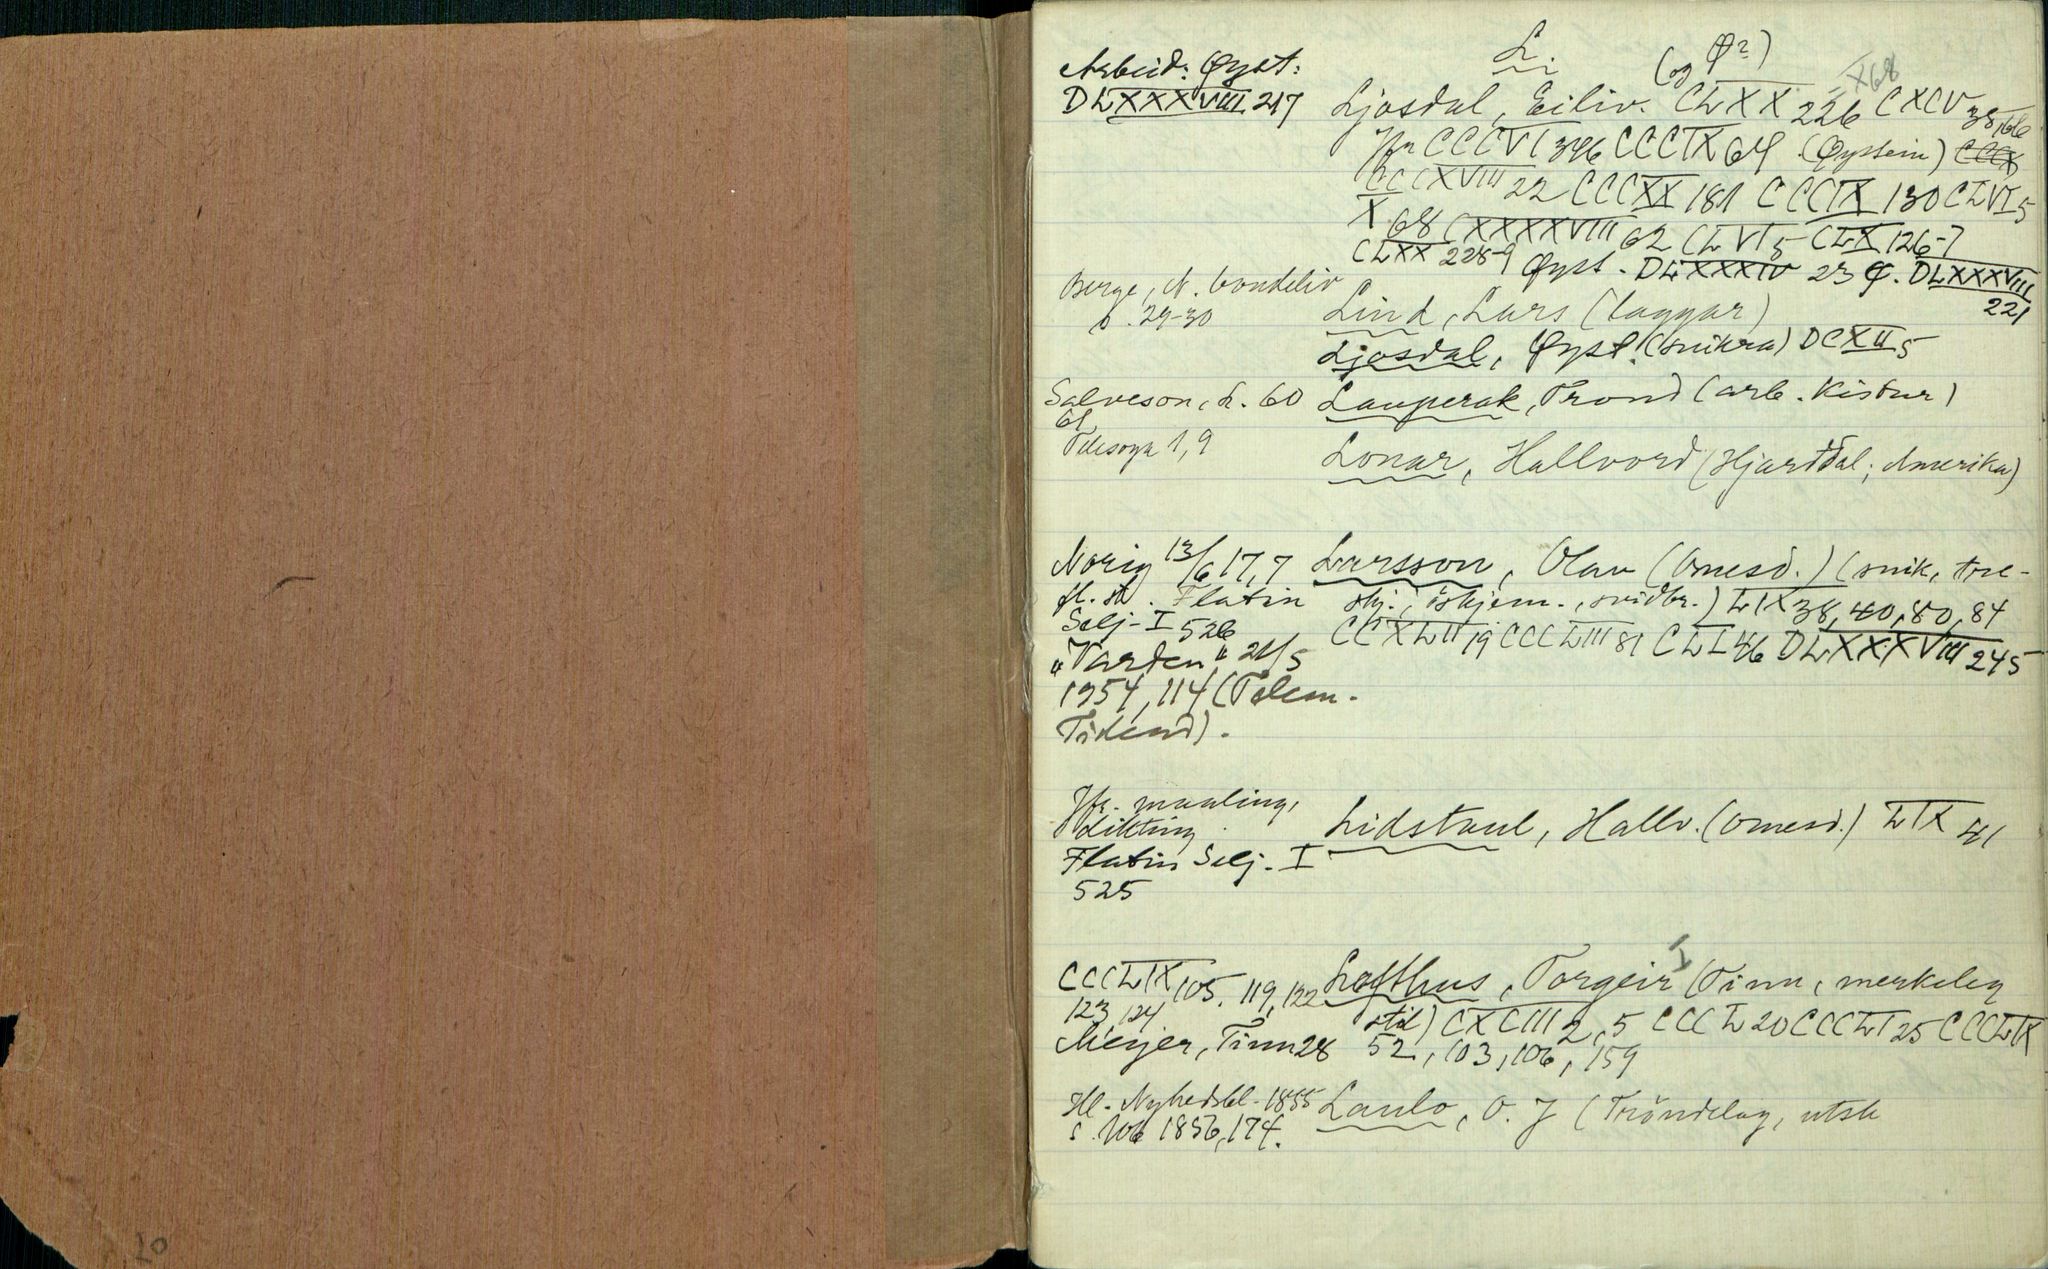 L.
Arbeid: Øyst:
DLXXXVIII 217
(og Ø?)
X68
Ljosdal, Eiliv. CLXX 226 CXCV 38, 66
Jfr CCCVI 346 CCCIX 64 (Øystein) CCCX
CCCXVIII 22 CCCXX 181 CCCIX 130 CLVI 5
X 68 CXXXXVIII 62 CLVI 5 CLX 126-7
CLXX 228-9 Øyst. DLXXXIV 23 Ø. DLXXXVIII
221
Berge, N. bondeliv
s. 29-30
Lind, Lars (laggar)
Ljosdal, Øyst. (snikra) DCXII 5
Salveson, L. 60
61
Lauperak, Trond (arb. Kistur)
Telesoga 1, 9
Lonar, Hallvord (Hjartdal; Amerika)
Norig 13/6 17, 7
Larsson, Olav (Ømesd.) (snik, tre-
fl. st. Flatin
skj., øskjem., svidbr.) LIX 38, 40, 80, 84
Selj. I 526
CCXLII 19 CCCLIII 81 CLI 46 DLXXXVIII 245
"Varden" 21/5
1954, 114 (Telem.
Tidend).
Jfr. maaling,
dikting
Lidstaul, Hallv. (Ømesd.) LIX 41
Flatin Selj. I
525
CCCLIX 105, 119, 122
123, 124
I
Lofthus, Torgeir (Tinn, merkeleg
stil) CXCIII 2, 5 CCCL 20 CCCLI 25 CCCLIX
Meyer, Tinn 28
52, 103, 106, 159
Ill. Nyhedsbl. 1855
s. 106 1856, 174.
Laulo, O. J (Tröndelag, utsk
20